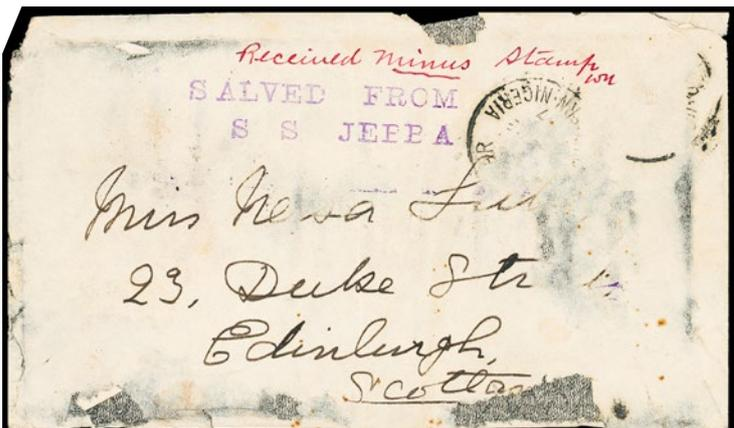 Received Minus Stamp
SALVED FROM
S S JEBBA
RN·NIGERIA
Miss Nesa
23, Duke Str
Edinburgh,
Scotlan